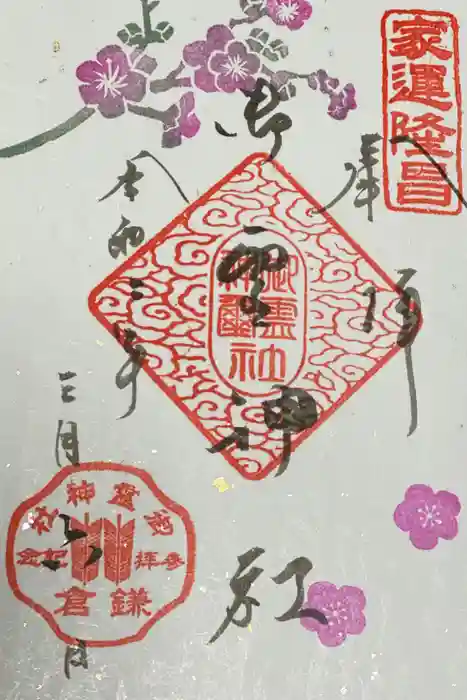 家運隆昌
奉拝
御霊神社
令和三年
三月六日
御霊神社
参拝記念
鎌倉